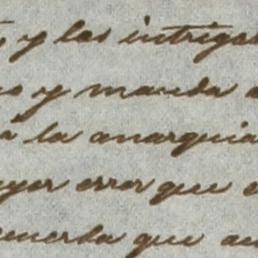 y las intrigas
y manda
a la anarquia
yor error que
cuerda que